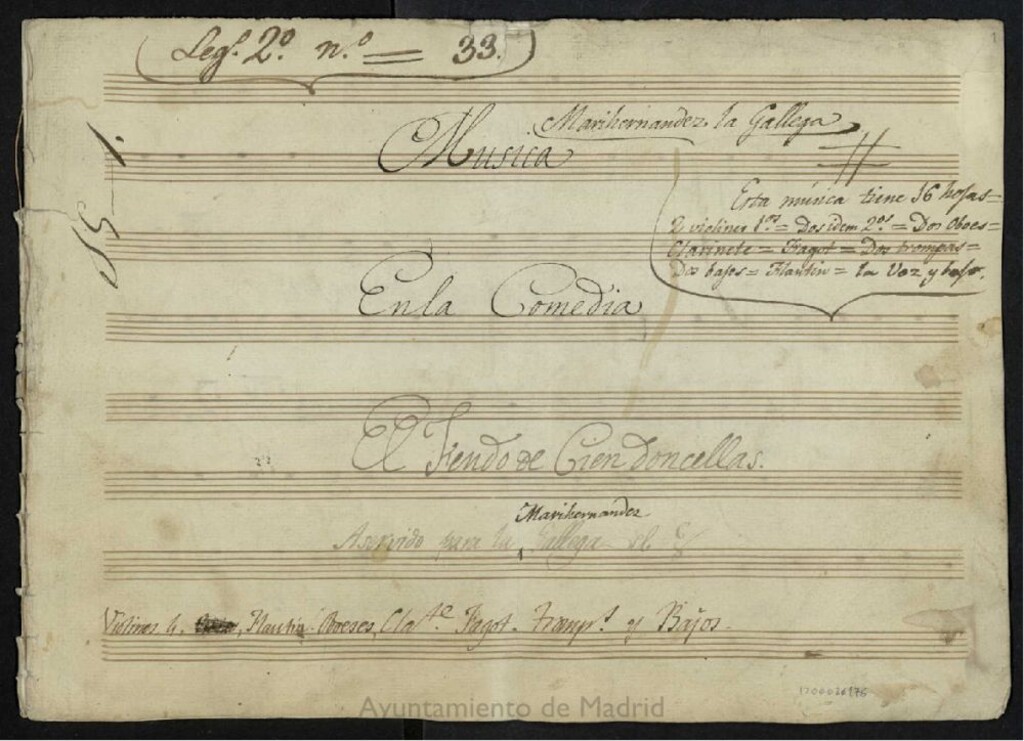 Leg.º 2.º n.º = 33.
Marihernandez la Gallega
Musica
Esta música tiene 16 hojas=
2 violines 1.os = Dos idem 2.os = Dos Oboes=
Clarinete = Fagot = Dos trompas=
Dos bajos = Flautin = la Voz y bajo.
En la Comedia
El Feudo de Cien Doncellas.
Marihernandez
A servido para la Gallega el
Violines 4, Flautin Oboeses, Cla.te Fagot. tromp.s y Bajos.
1200026976
Ayuntamiento de Madrid